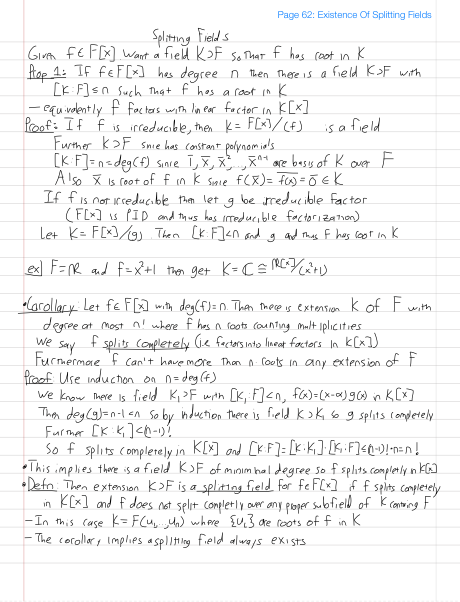 Page 62: Existence Of Splitting Fields
Splitting Fields
Given f∈F[x] want a field K⊃F so that f has root in K
Prop 1: If f∈F[x] has degree n then there is a field K⊃F with
[K:F]≤n such that f has a root in K
— equivalently f factors with linear factor in K[x]
Proof: If f is irreducible, then K = F[x]/(f) is a field
Further K⊃F since has constant polynomials
[K:F]=n=deg(f) since 1̅, x̅, x̅², ..., x̅ⁿ⁻¹ are basis of K over F
Also x̅ is root of f in K since f(x̅) = f(x)̅ = 0̅ ∈ K
If f is not irreducible then let g be irreducible factor
(F[x] is PID and thus has irreducible factorization)
Let K = F[x]/(g). Then [K:F]<n and g and thus f has root in K
ex) F=ℝ and f=x²+1 then get K=ℂ≅ℝ[x]/(x²+1)
• Corollary: Let f∈F[x] with deg(f)=n. Then there is extension K of F with
degree at most n! where f has n roots counting multiplicities
We say f splits completely (i.e. factors into linear factors in K[x])
Furthermore f can't have more than n roots in any extension of F
Proof: Use induction on n=deg(f)
We know there is field K₁⊃F with [K₁:F]≤n, f(x)=(x-α)g(x) in K₁[x]
Then deg(g)=n-1<n so by induction there is field K⊃K₁ so g splits completely
Further [K:K₁]≤(n-1)!
So f splits completely in K[x] and [K:F]=[K:K₁]·[K₁:F]≤(n-1)!·n=n!
• This implies there is a field K⊃F of minimal degree so f splits completly in K[x]
• Defn: Then extension K⊃F is a splitting field for f∈F[x] if f splits completely
in K[x] and f does not split completly over any proper subfield of K containing F
– In this case K=F(u₁,...,uₙ) where {uᵢ} are roots of f in K
– The corollary implies a splitting field always exists